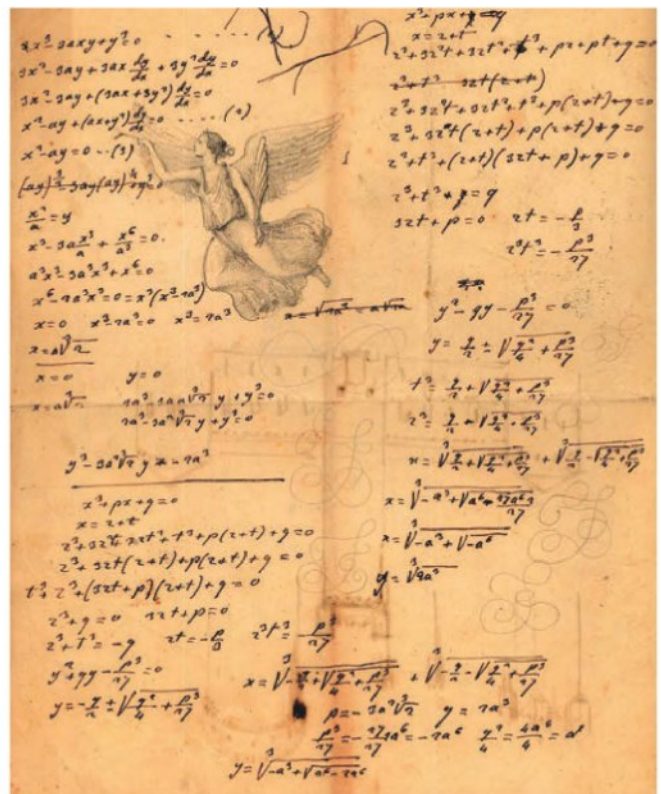 x³-3axy+y³=0 ..... (1)
3x²-3ay+3ax dy/dx+3y² dy/dx=0
3x²-3ay+(3ax+3y²)dy/dx=0
x²-ay+(ax+y²)dy/dx=0 ..... (2)
x²-ay=0 --(3)
x²/a=y
x³-3a x³/a+x⁶/a³=0.
a³x³-3a³x³+x⁶=0
x⁶-2a³x³=0=x³(x³-2a³)
x=0 x³-2a³=0 x³=2a³
x=a∛2
x=0 y=0
x=a∛2 2a³-3aa∛2 y+y³=0
2a³-3a²∛2 y+y³=0
y³-3a²∛2 y=-2a³
x³+px+q=0
x=z+t
z³+3z²t+3zt²+t³+p(z+t)+q=0
z³+3zt(z+t)+p(z+t)+q=0
t³+z³+(3zt+p)(z+t)+q=0
z³+q=0 3zt+p=0
z³+t³=-q zt=-p/3 z³t³=-p³/27
y²+qy-p³/27=0
y=-q/2±√(q²/4+p³/27)
x³+px+q=0
x=z+t
z³+3z²t+3zt²+t³+pz+pt+q=0
z³+t³ 3zt(z+t)
z³+3z²t+3zt²+t³+p(z+t)+q=0
z³+3zt(z+t)+p(z+t)+q=0
z³+t³+(z+t)(3zt+p)+q=0
z³+t³=q
3zt+p=0 zt=-p/3
z³t³=-p³/27
y²-qy-p³/27=0
y=q/2±√(q²/4+p³/27)
t³=q/2+√(q²/4+p³/27)
z³=q/2+√(q²/4+p³/27)
x=∛(q/2+√(q²/4+p³/27))+∛(q/2-√(q²/4+p³/27))
x=∛(-a³+√(-a⁶))
y=∛(2a³)
x=∛(-q/2+√(q²/4+p³/27))+∛(-q/2-√(q²/4+p³/27))
p=-3a²∛2 q=2a³
p³/27=-27/27 2a⁶=-2a⁶ q²/4=4a⁶/4=a⁶
y=∛(-a³+√(a⁶-2a⁶))